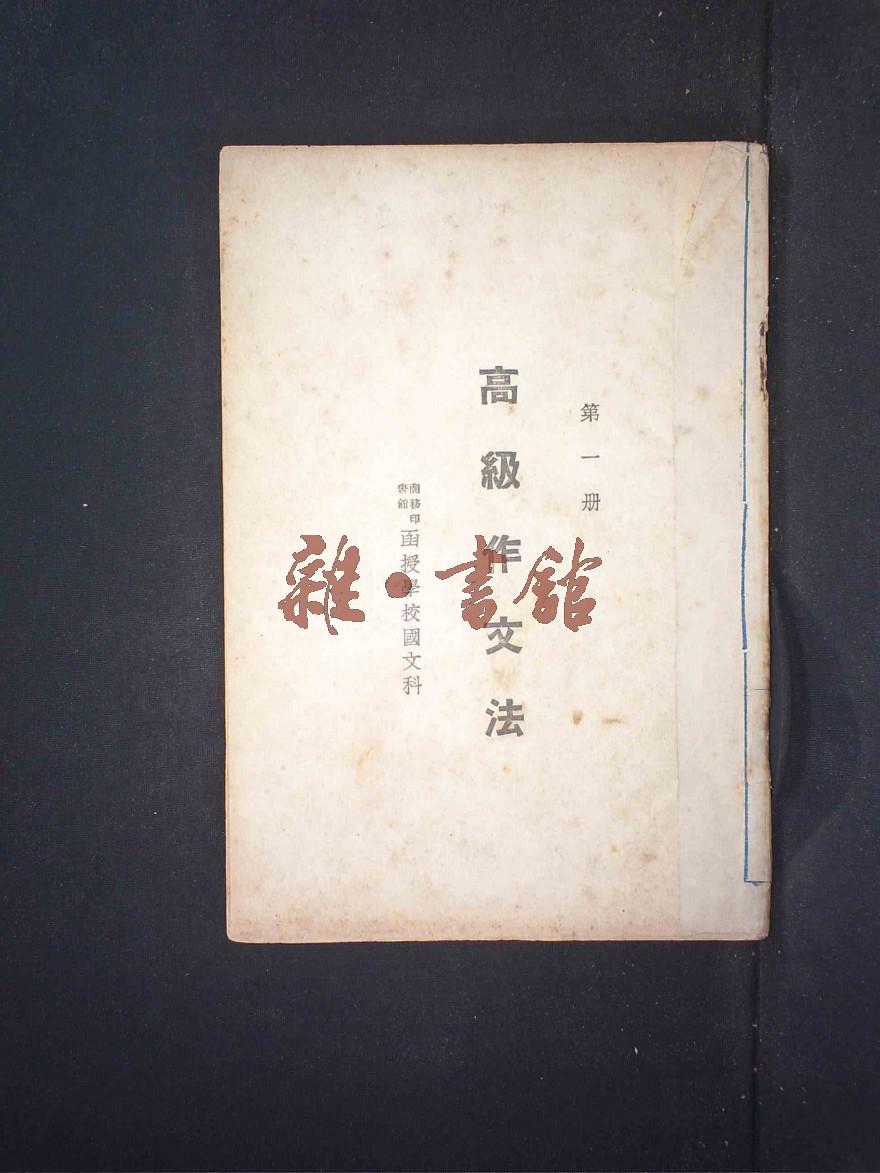 第一册
高級作文法
商務印書館
函授學校國文科
雜·書館